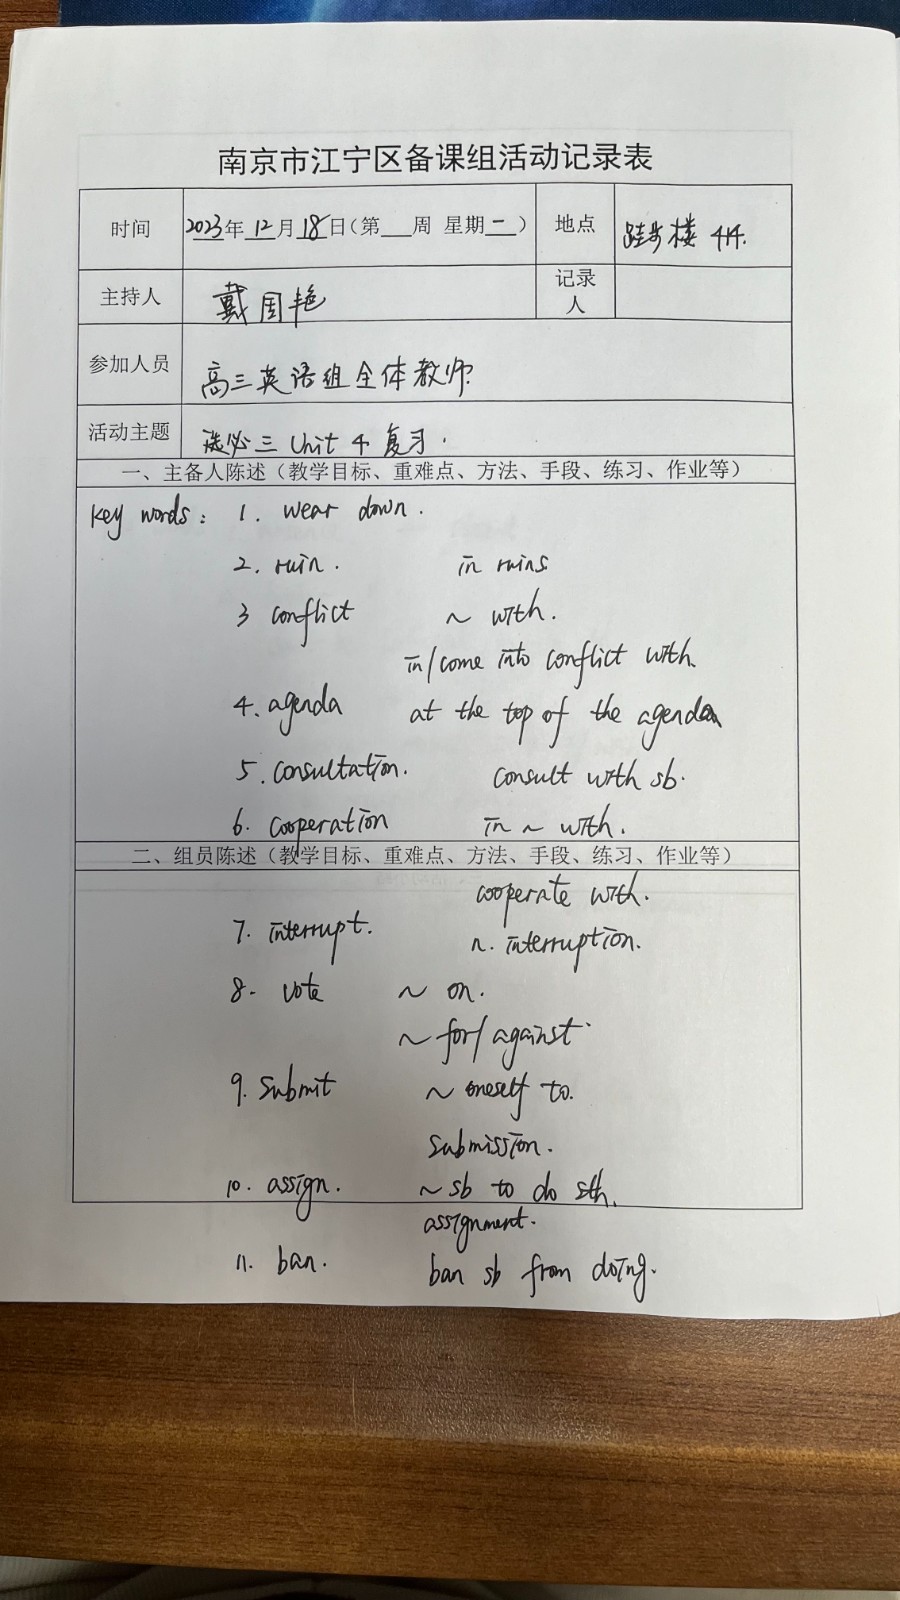 南京市江宁区备课组活动记录表
时间 2023年12月18日(第___周 星期一) 地点 跬步楼 414.
主持人 戴国艳 记录人
参加人员 高三英语组全体教师.
活动主题 选必三 Unit 4 复习.
一、主备人陈述（教学目标、重难点、方法、手段、练习、作业等）
key words: 1. wear down.
2. ruin. in ruins
3 conflict ~ with.
in/come into conflict with.
4. agenda at the top of the agenda
5. consultation. consult with sb.
6. cooperation in ~ with.
二、组员陈述（教学目标、重难点、方法、手段、练习、作业等）
cooperate with.
7. interrupt. n. interruption.
8. vote ~ on.
~ for/against.
9. submit ~ oneself to.
submission.
10. assign. ~ sb to do sth.
assignment.
11. ban. ban sb from doing.